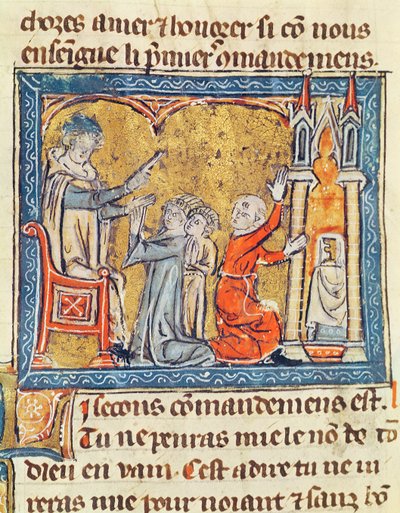 chozes amer ⁊ honorer si cō nous
enseigne li pmiers omandemens.
I secons cōmandemens est.
Tu ne penras mie le nō de tō
dieu en vain. Cest a dire tu ne iu
reras mie pour noiant ⁊ sanz bō